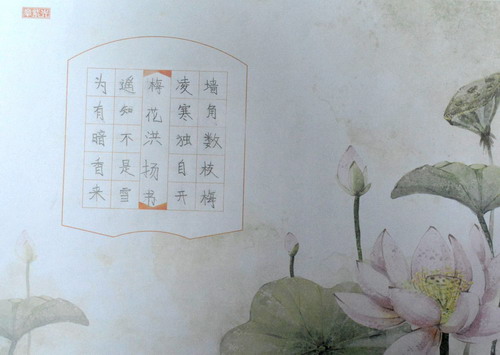 墙角数枝梅
凌寒独自开
梅花洪扬书
遥知不是雪
为有暗自来